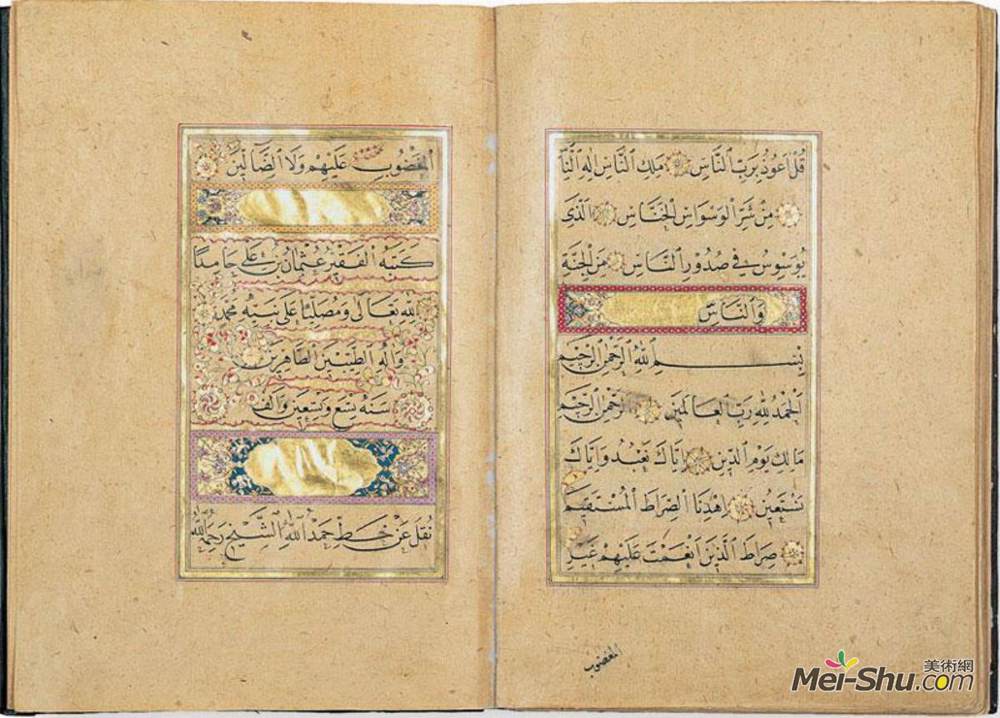 قُلْ اَعُوذُ بِرَبِّ النَّاسِ مَلِكِ النَّاسِ اِلٰهِ النَّاسِ
مِنْ شَرِّ الْوَسْوَاسِ الْخَنَّاسِ الَّذِى
يُوَسْوِسُ فِى صُدُورِ النَّاسِ مِنَ الْجِنَّةِ
وَالنَّاسِ
بِسْمِ اللّٰهِ الرَّحْمٰنِ الرَّحِيمِ
اَلْحَمْدُ لِلّٰهِ رَبِّ الْعَالَمِينَ الرَّحْمٰنِ الرَّحِيمِ
مَالِكِ يَوْمِ الدِّينِ اِيَّاكَ نَعْبُدُ وَاِيَّاكَ
نَسْتَعِينُ اِهْدِنَا الصِّرَاطَ الْمُسْتَقِيمَ
صِرَاطَ الَّذِينَ اَنْعَمْتَ عَلَيْهِمْ غَيْرِ
المغضوب
الْمَغْضُوبِ عَلَيْهِمْ وَلَا الضَّالِّينَ
كَتَبَهُ الْفَقِيرُ عُثْمَانُ بْنُ عَلِى حَامِدًا
لِلّٰهِ تَعَالٰى وَمُصَلِّيًا عَلٰى نَبِيِّهِ مُحَمَّدٍ
وَاٰلِهِ الطَّيِّبِينَ الطَّاهِرِينَ
سَنَةَ تِسْعٍ وَتِسْعِينَ وَاَلْفٍ
نُقِلَ عَنْ خَطِّ حَمْدُ اللّٰهِ الشَّيْخِ رَحِمَهُ اللّٰهُ
美術網
Mei-Shu.com